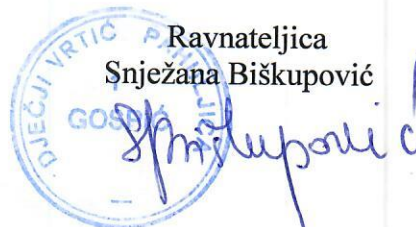 Ravnateljica
Snježana Biškupović
DJEČJI VRTIĆ PAHULJICA
1
GOSPIĆ